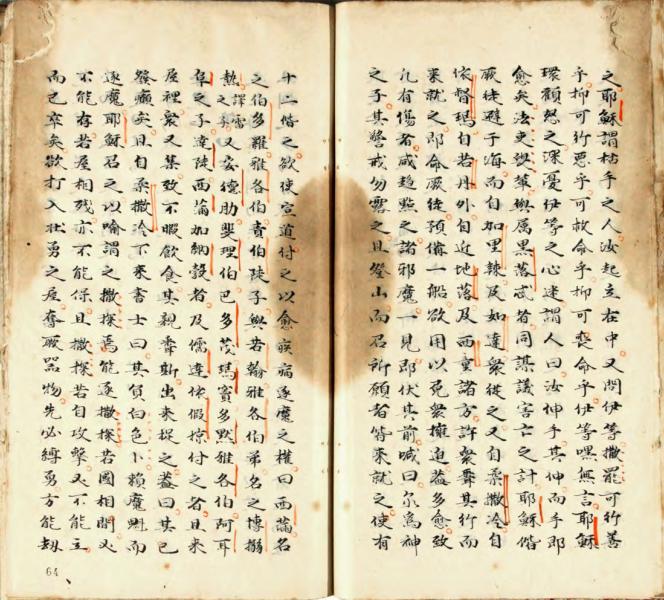 之耶穌謂枯手之人汝起立在中又問伊等撒罷可行善
乎抑可行惡乎可救命乎抑可喪命乎伊等嘿無言耶穌
環顧怒之深憂伊等之心迷謂人曰汝伸手其伸而手即
愈矣法吏與黑落忒者同謀議害亡之計耶穌偕
厥徒避于海而自加里辣及如達衆徒之又自柔撒冷自
依督瑪自若丹外自近地落及西童諸方許衆聞其行而
來就之即命厥徒預備一船欲用以免衆擁迫蓋多愈致
凡有傷者咸趨點之諸邪魔一見即伏其前喊曰尔為神
之子其警戒勿露之且登山而召所願者皆來就之使有
十二偕之欲使宣道付之以愈疾病逐魔之權曰西滿名
之伯多羅雅各伯責伯陡子與若翰雅各伯弟名之博搦
熱譯雷之子又安德肋斐理伯巴多茂瑪寶多默雅各伯阿耳
阜之子達陡西滿加納穀者及儒達依假掠付之者且來
屋裡衆又集致不暇飲食其親聞斯出來捉之蓋曰其已
發癲矣且自柔撒冷下來書士曰其負白色卜賴魔魁而
逐魔耶穌召之以喻謂之撒探焉能逐撒探若國相鬥必
不能存若屋相殘亦不能保且撒探若自攻擊又不能立
而已卒矣欲打入壯勇之屋奪厥器物先必縛勇方能劫
64